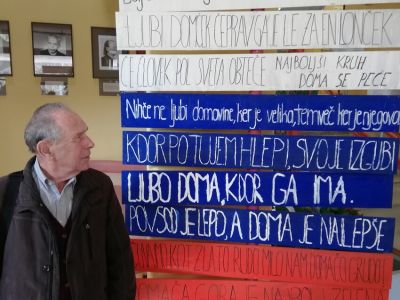 LJUBI DOMEK ČEPRAV GA JE LE ZA EN LONČEK
ČE ČLOVEK POL SVETA OBTEČE NAJBOLJŠI KRUH
DOMA SE PEČE
Nihče ne ljubi domovine, ker je velika, temveč ker je njegova
KDOR PO TUJEM HLEPI, SVOJE IZGUBI
LJUBO DOMA, KDOR GA IMA.
POVSOD JE LEPO, A DOMA JE NAJLEPŠE